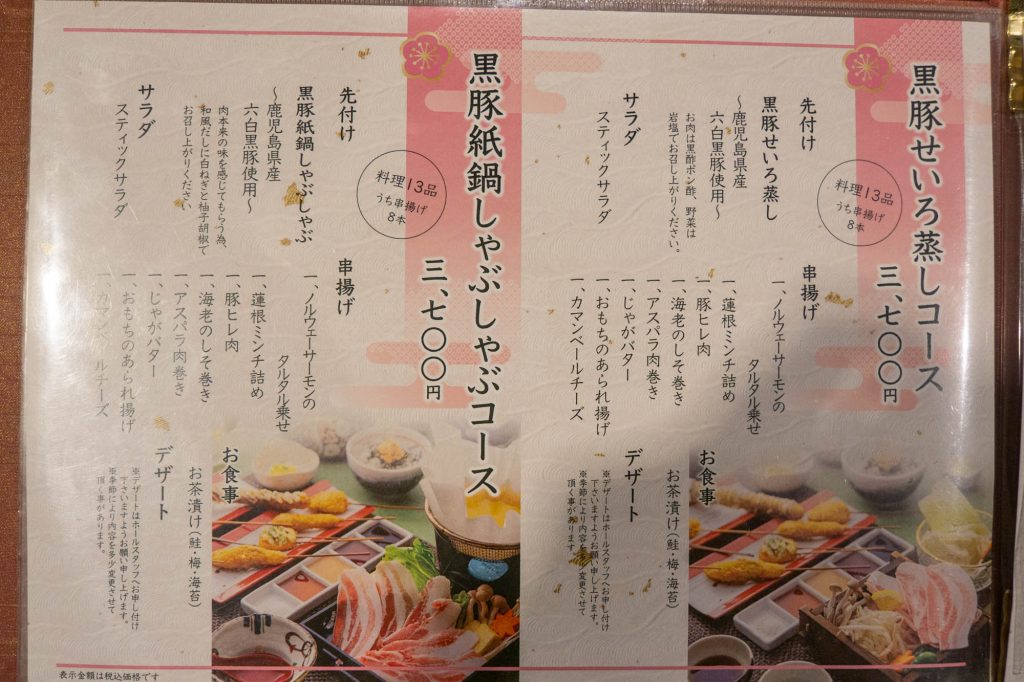 黒豚せいろ蒸しコース
三、七〇〇円
料理13品
うち串揚げ
8本
先付け
黒豚せいろ蒸し
〜鹿児島県産
六白黒豚使用〜
お肉は黒酢ポン酢、野菜は
岩塩でお召し上がりください。
サラダ
スティックサラダ
串揚げ
一、ノルウェーサーモンの
タルタル乗せ
一、蓮根ミンチ詰め
一、豚ヒレ肉
一、海老のしそ巻き
一、アスパラ肉巻き
一、じゃがバター
一、おもちのあられ揚げ
一、カマンベールチーズ
お食事
お茶漬け(鮭・梅・海苔)
デザート
※デザートはホールスタッフへお申し付け
下さいますようお願い申し上げます。
※季節により内容を多少変更させて
頂く事があります。
黒豚紙鍋しゃぶしゃぶコース
三、七〇〇円
料理13品
うち串揚げ
8本
先付け
黒豚紙鍋しゃぶしゃぶ
〜鹿児島県産
六白黒豚使用〜
肉本来の味を感じてもらう為、
和風だしに白ねぎと柚子胡椒で
お召し上がりください
サラダ
スティックサラダ
串揚げ
一、ノルウェーサーモンの
タルタル乗せ
一、蓮根ミンチ詰め
一、豚ヒレ肉
一、海老のしそ巻き
一、アスパラ肉巻き
一、じゃがバター
一、おもちのあられ揚げ
一、カマンベールチーズ
お食事
お茶漬け(鮭・梅・海苔)
デザート
※デザートはホールスタッフへお申し付け
下さいますようお願い申し上げます。
※季節により内容を多少変更させて
頂く事があります。
表示金額は税込価格です